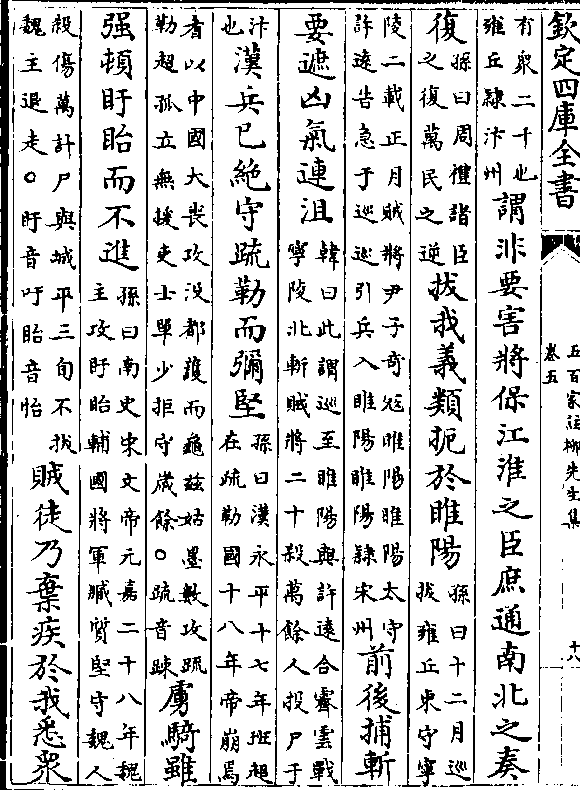 欽定四庫全書
五百家注柳先生集
卷五
十八
有衆二千也
雍丘隸汴州
謂非要害將保江淮之臣庶通南北之奏
復
孫曰周禮諸臣
之復萬民之逆
拔我義類扼於睢陽
孫曰十二月巡
拔雍丘東守寧
陵二載正月賊將尹子竒冦睢陽睢陽太守
許遠告急于巡巡引兵入睢陽睢陽隸宋州
前後捕斬
要遮凶氣連沮
韓曰此謂巡至睢陽與許遠合霽雲戰
寧陵北斬賊將二十殺萬餘人投尸于
汴
也
漢兵已絶守疏勒而彌堅
孫曰漢永平十七年班超
在疏勒國十八年帝崩焉
耆以中國大喪攻没都護而龜兹姑墨數攻疏
勒超孤立無援吏士單少拒守歲餘○疏音踈
虜騎雖
强頓盱眙而不進
孫曰南史宋文帝元嘉二十八年魏
主攻盱眙輔國將軍臧質堅守魏人
殺傷萬計尸與城平三旬不拔
魏主退走○盱音吁眙音怡
賊徒乃棄疾於我悉衆